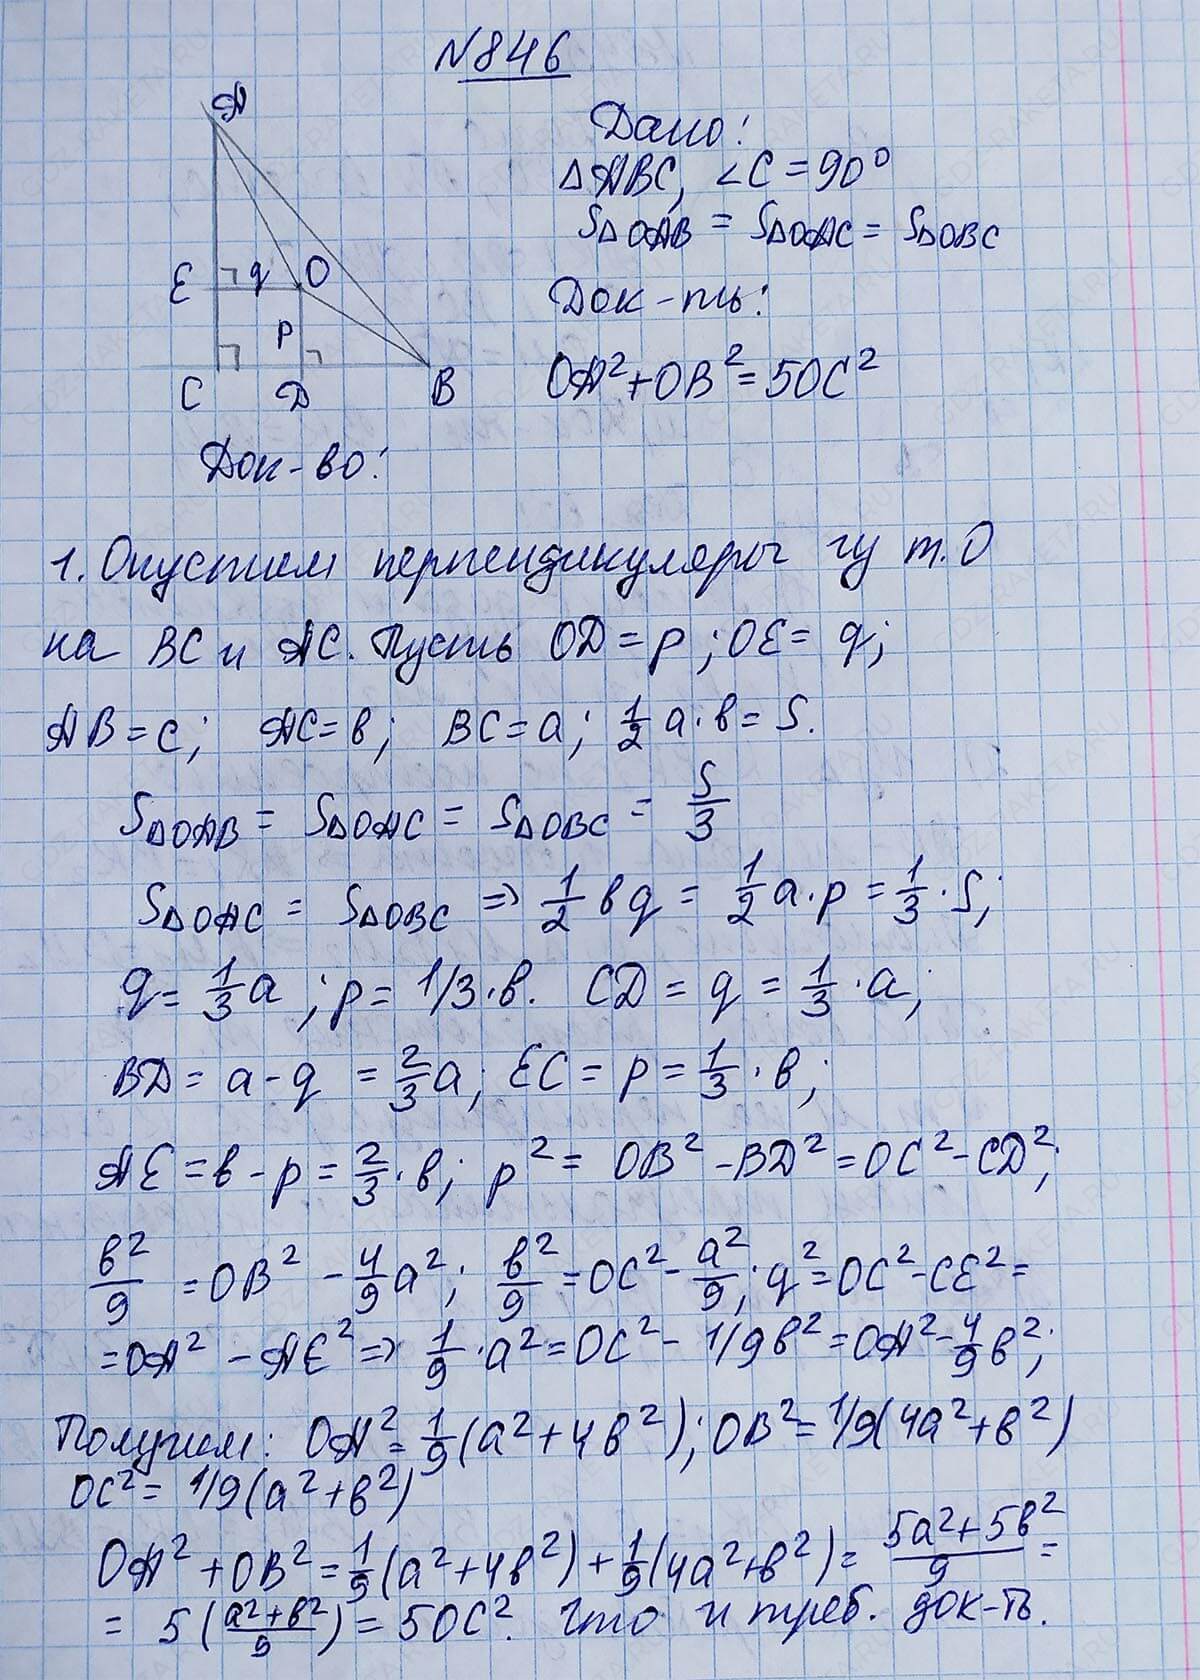 №846
A
E q O
P
C D B
Дано:
△ABC, ∠C = 90°
S△OAB = S△OAC = S△OBC
Док-ть:
OA² + OB² = 5OC²
Док-во:
1. Опустим перпендикуляры из т. O
на BC и AC. Пусть OD = p; OE = q;
AB = c; AC = в; BC = a; 1/2 a·в = S.
S△OAB = S△OAC = S△OBC = S/3
S△OAC = S△OBC => 1/2 вq = 1/2 a·p = 1/3·S;
q = 1/3 a; p = 1/3·в. CD = q = 1/3·a;
BD = a - q = 2/3 a; EC = p = 1/3·в;
AE = в - p = 2/3·в; p² = OB² - BD² = OC² - CD²;
в²/9 = OB² - 4/9 a²; в²/9 = OC² - a²/9; q² = OC² - CE² =
= OA² - AE² => 1/9·a² = OC² - 1/9в² = OA² - 4/9 в²;
Получим: OA² = 1/9(a² + 4в²); OB² = 1/9(4a² + в²)
OC² = 1/9(a² + в²)
OA² + OB² = 1/9(a² + 4в²) + 1/9(4a² + в²) = 5a² + 5в²/9 =
= 5(a² + в²/9) = 5OC². что и треб. док-ть.